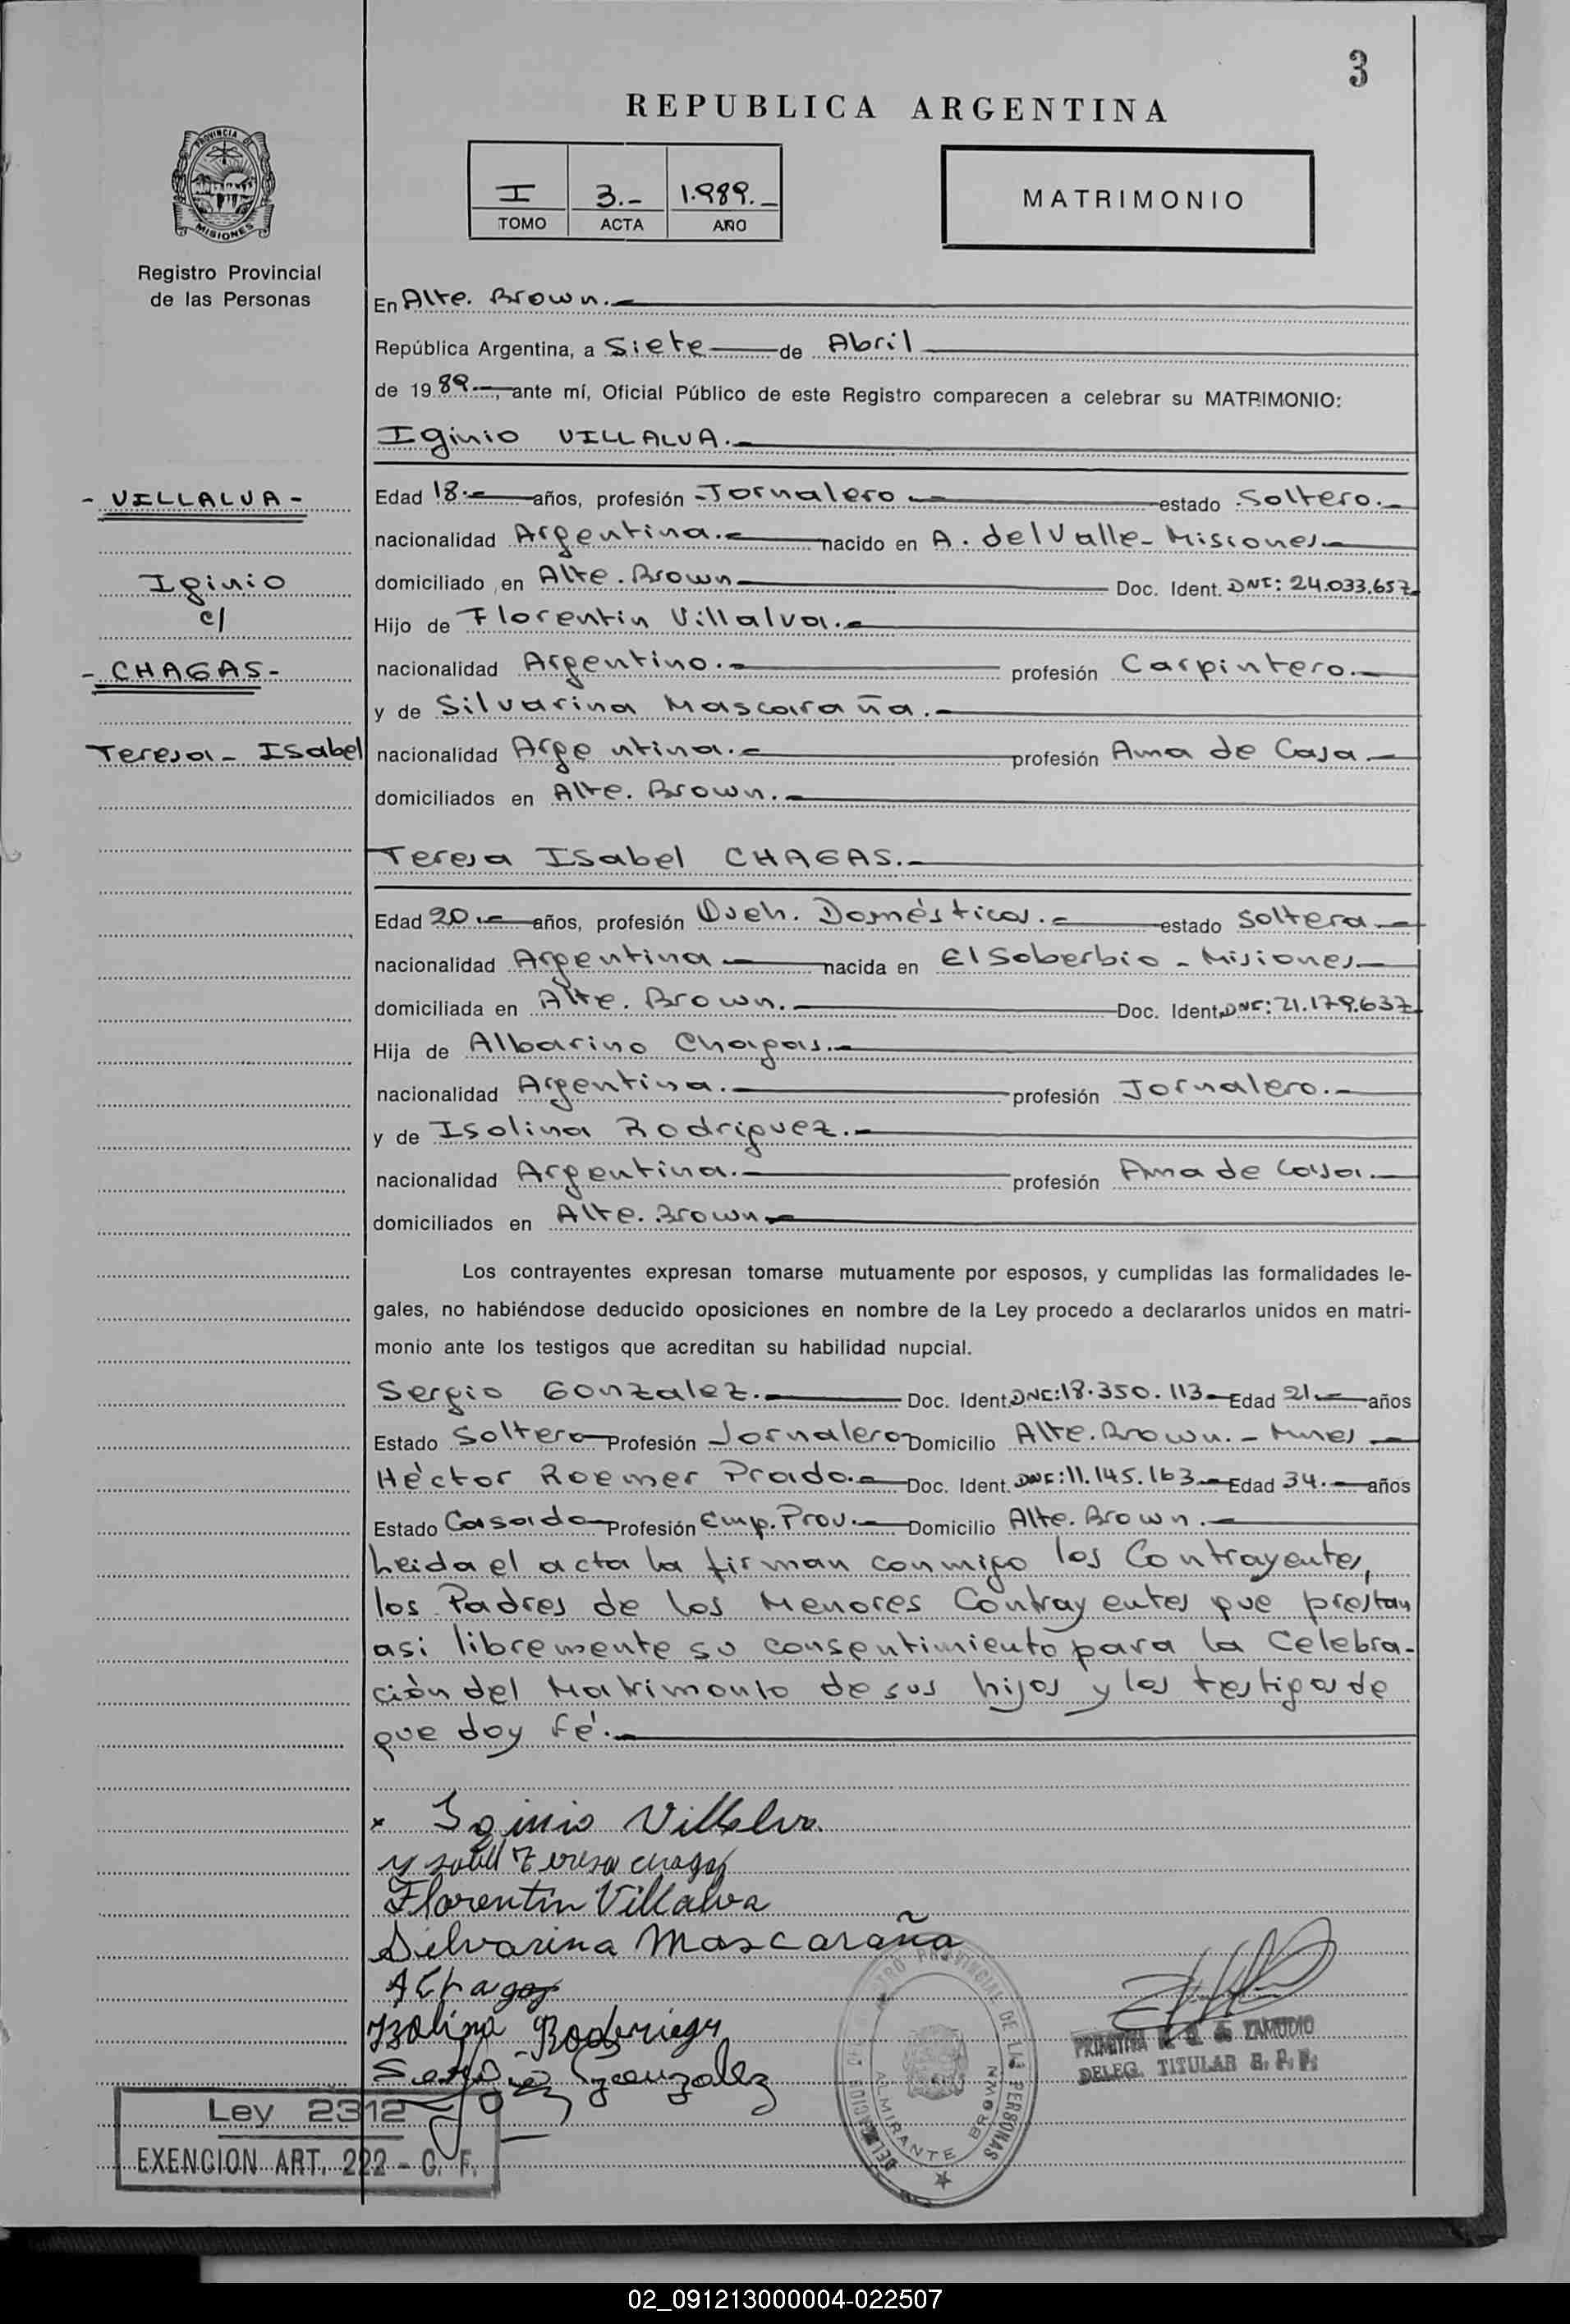 3
REPUBLICA ARGENTINA
PROVINCIA DE
MISIONES
I 3.- 1.989.-
TOMO ACTA AÑO
MATRIMONIO
Registro Provincial
de las Personas
En Alte. Brown.-
República Argentina, a Siete de Abril
de 1989.-, ante mí, Oficial Público de este Registro comparecen a celebrar su MATRIMONIO:
Iginio VILLALVA.-
- VILLALVA -
Iginio
c/
- CHAGAS -
Teresa - Isabel
Edad 18.- años, profesión Jornalero.- estado Soltero.-
nacionalidad Argentina.- nacido en A. del Valle - Misiones.-
domiciliado en Alte. Brown Doc. Ident. DNI: 24.033.657.
Hijo de Florentin Villalva.-
nacionalidad Argentino.- profesión Carpintero.-
y de Silvarina Mascaraña.-
nacionalidad Argentina.- profesión Ama de Casa.-
domiciliados en Alte. Brown.-
Teresa Isabel CHAGAS.-
Edad 20.- años, profesión Queh. Domésticos.- estado Soltera.-
nacionalidad Argentina.- nacida en El Soberbio - Misiones.-
domiciliada en Alte. Brown.- Doc. Ident. DNI: 21.179.637
Hija de Albarino Chagas.-
nacionalidad Argentina.- profesión Jornalero.-
y de Isolina Rodriguez.-
nacionalidad Argentina.- profesión Ama de Casa.-
domiciliados en Alte. Brown.-
Los contrayentes expresan tomarse mutuamente por esposos, y cumplidas las formalidades le-
gales, no habiéndose deducido oposiciones en nombre de la Ley procedo a declararlos unidos en matri-
monio ante los testigos que acreditan su habilidad nupcial.
Sergio Gonzalez.- Doc. Ident. DNI: 18.350.113.- Edad 21.- años
Estado Soltero Profesión Jornalero Domicilio Alte. Brown. - Mnes.-
Héctor Roemer Prado.- Doc. Ident. DNI: 11.145.163.- Edad 34.- años
Estado Casado Profesión Emp. Prov.- Domicilio Alte. Brown.-
Leida el acta la firman conmigo los Contrayentes,
los Padres de los Menores Contrayentes que prestan
asi libremente su consentimiento para la Celebra-
ción del Matrimonio de sus hijos y los testigos de
que doy fé.-
x Iginio Villalva.
Ysabel Teresa chagas
Florentin Villalva
Silvarina Mascaraña
A Chagas
Isolina Roderigez
Sergio Gonzalez
REGISTRO PROVINCIAL DE LAS PERSONAS
DELEGACION
ALMIRANTE BROWN
PRIMITIVA ZAMUDIO
DELEG. TITULAR R. P. P.
Ley 2312
EXENCION ART. 222 - C. F.
02_091213000004-022507